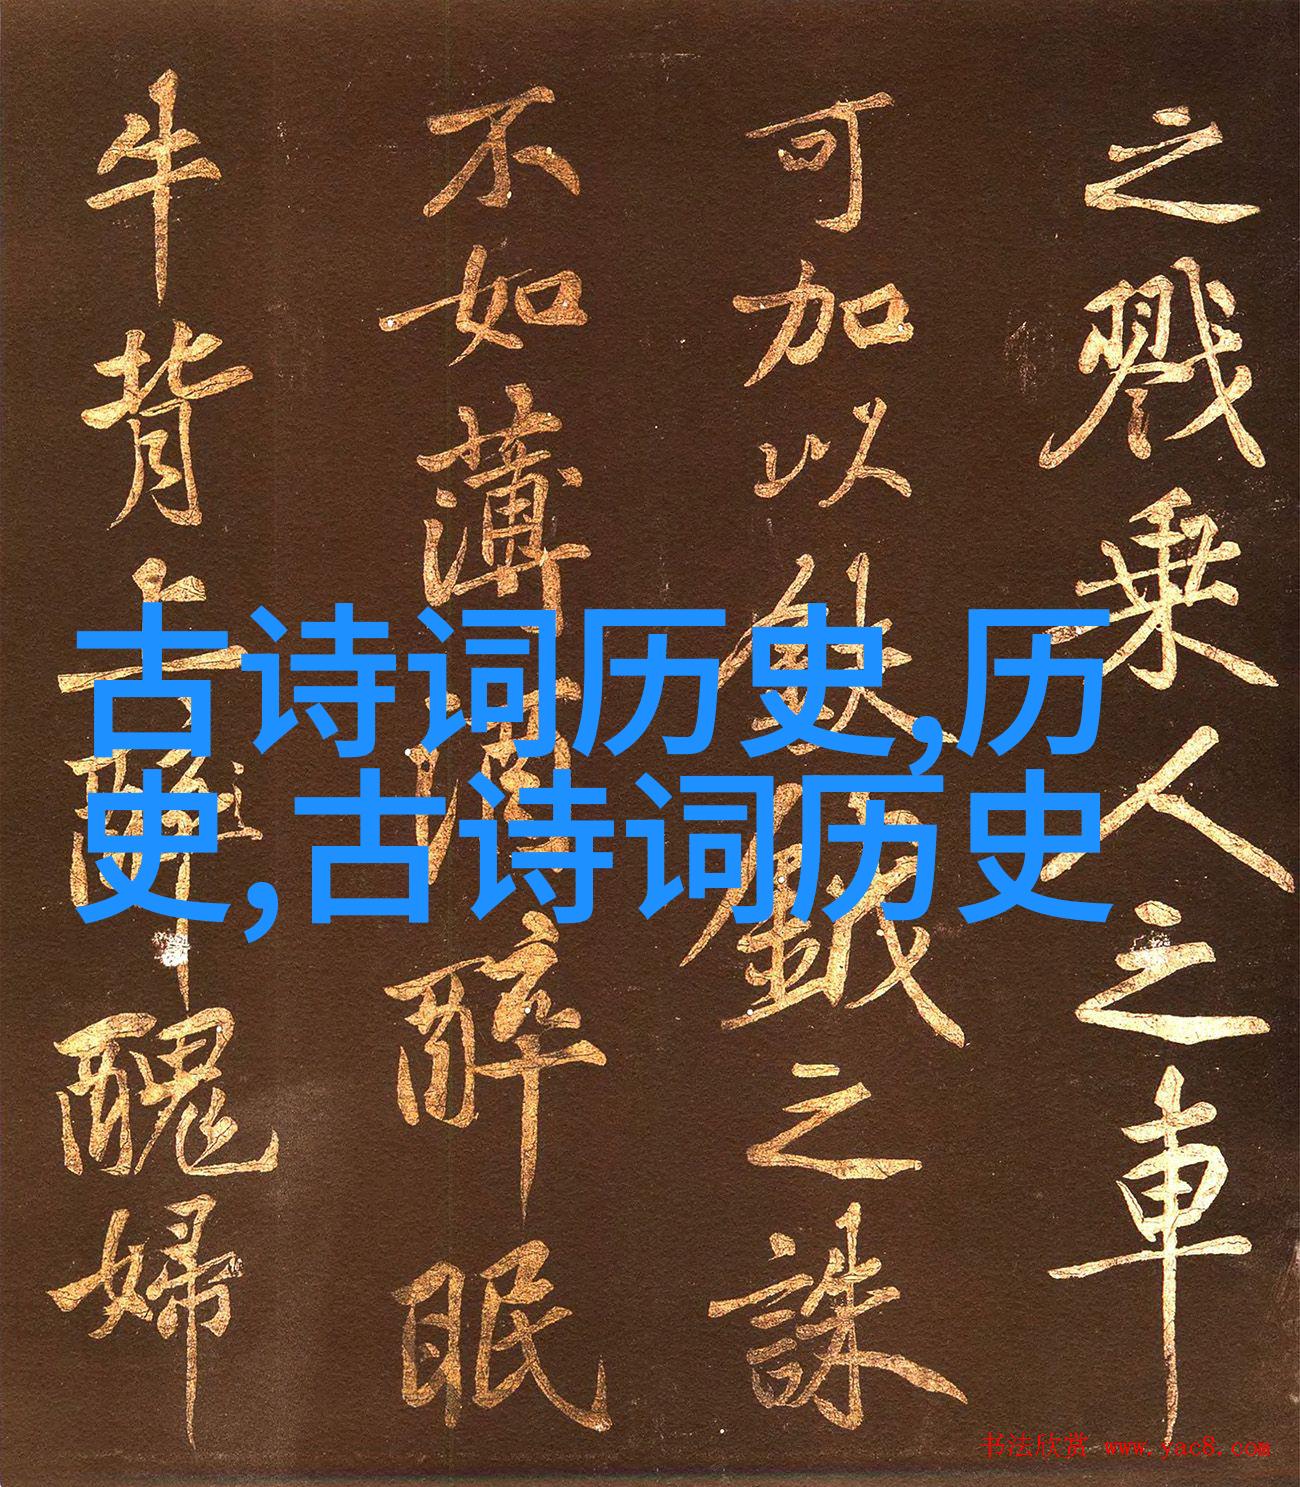 之戮乘人之車
可加以鈇鉞之誅
不如薄酒醉眠
牛背上醜婦
古诗词历史,历
史,古诗词历史
书法欣赏 www.yac8.com